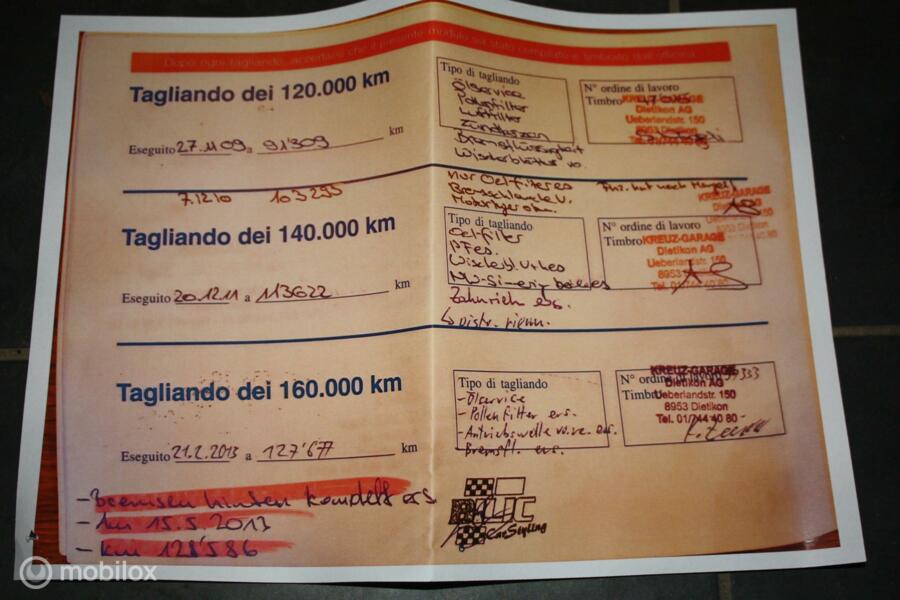 Dopo ogni tagliando, accertarsi che il presente modulo sia stato compilato e timbrato dall'officina
Tagliando dei 120.000 km
Eseguito 27.11 09 a 91309 km
Tipo di tagliando
Ölservice
Pollenfilter
Luftfilter
Zündkerzen
Bremsflüssigkeit
Wischerblätter vo
N° ordine di lavoro
Timbro
KREUZ-GARAGE
Dietikon AG
Ueberlandstr. 150
8953 Dietikon
Tel. 01/744 40 80
7.12.10 103295
nur Oelfilter es
KREUZ-GARAGE
8953 Dietikon
Tagliando dei 140.000 km
Eseguito 20.12.11 a 113622 km
Tipo di tagliando
Oelfilter
N° ordine di lavoro
Timbro
KREUZ-GARAGE
Dietikon AG
Ueberlandstr. 150
8953
Tel. 01/744 40 80
Zahnriem ers.
Tagliando dei 160.000 km
Eseguito 21.2.2013 a 127'677 km
Tipo di tagliando
- Ölservice
- Pollenfilter ers.
- Antriebswelle vo.re. ers.
- Bremsfl. ers.
N° ordine di lavoro
Timbro
KREUZ-GARAGE
Dietikon AG
Ueberlandstr. 150
8953 Dietikon
Tel. 01/744 40 80
- Bremsen hinten komplett ers
- Am 15.5.2013
- km 128'586
Car Styling
mobilox